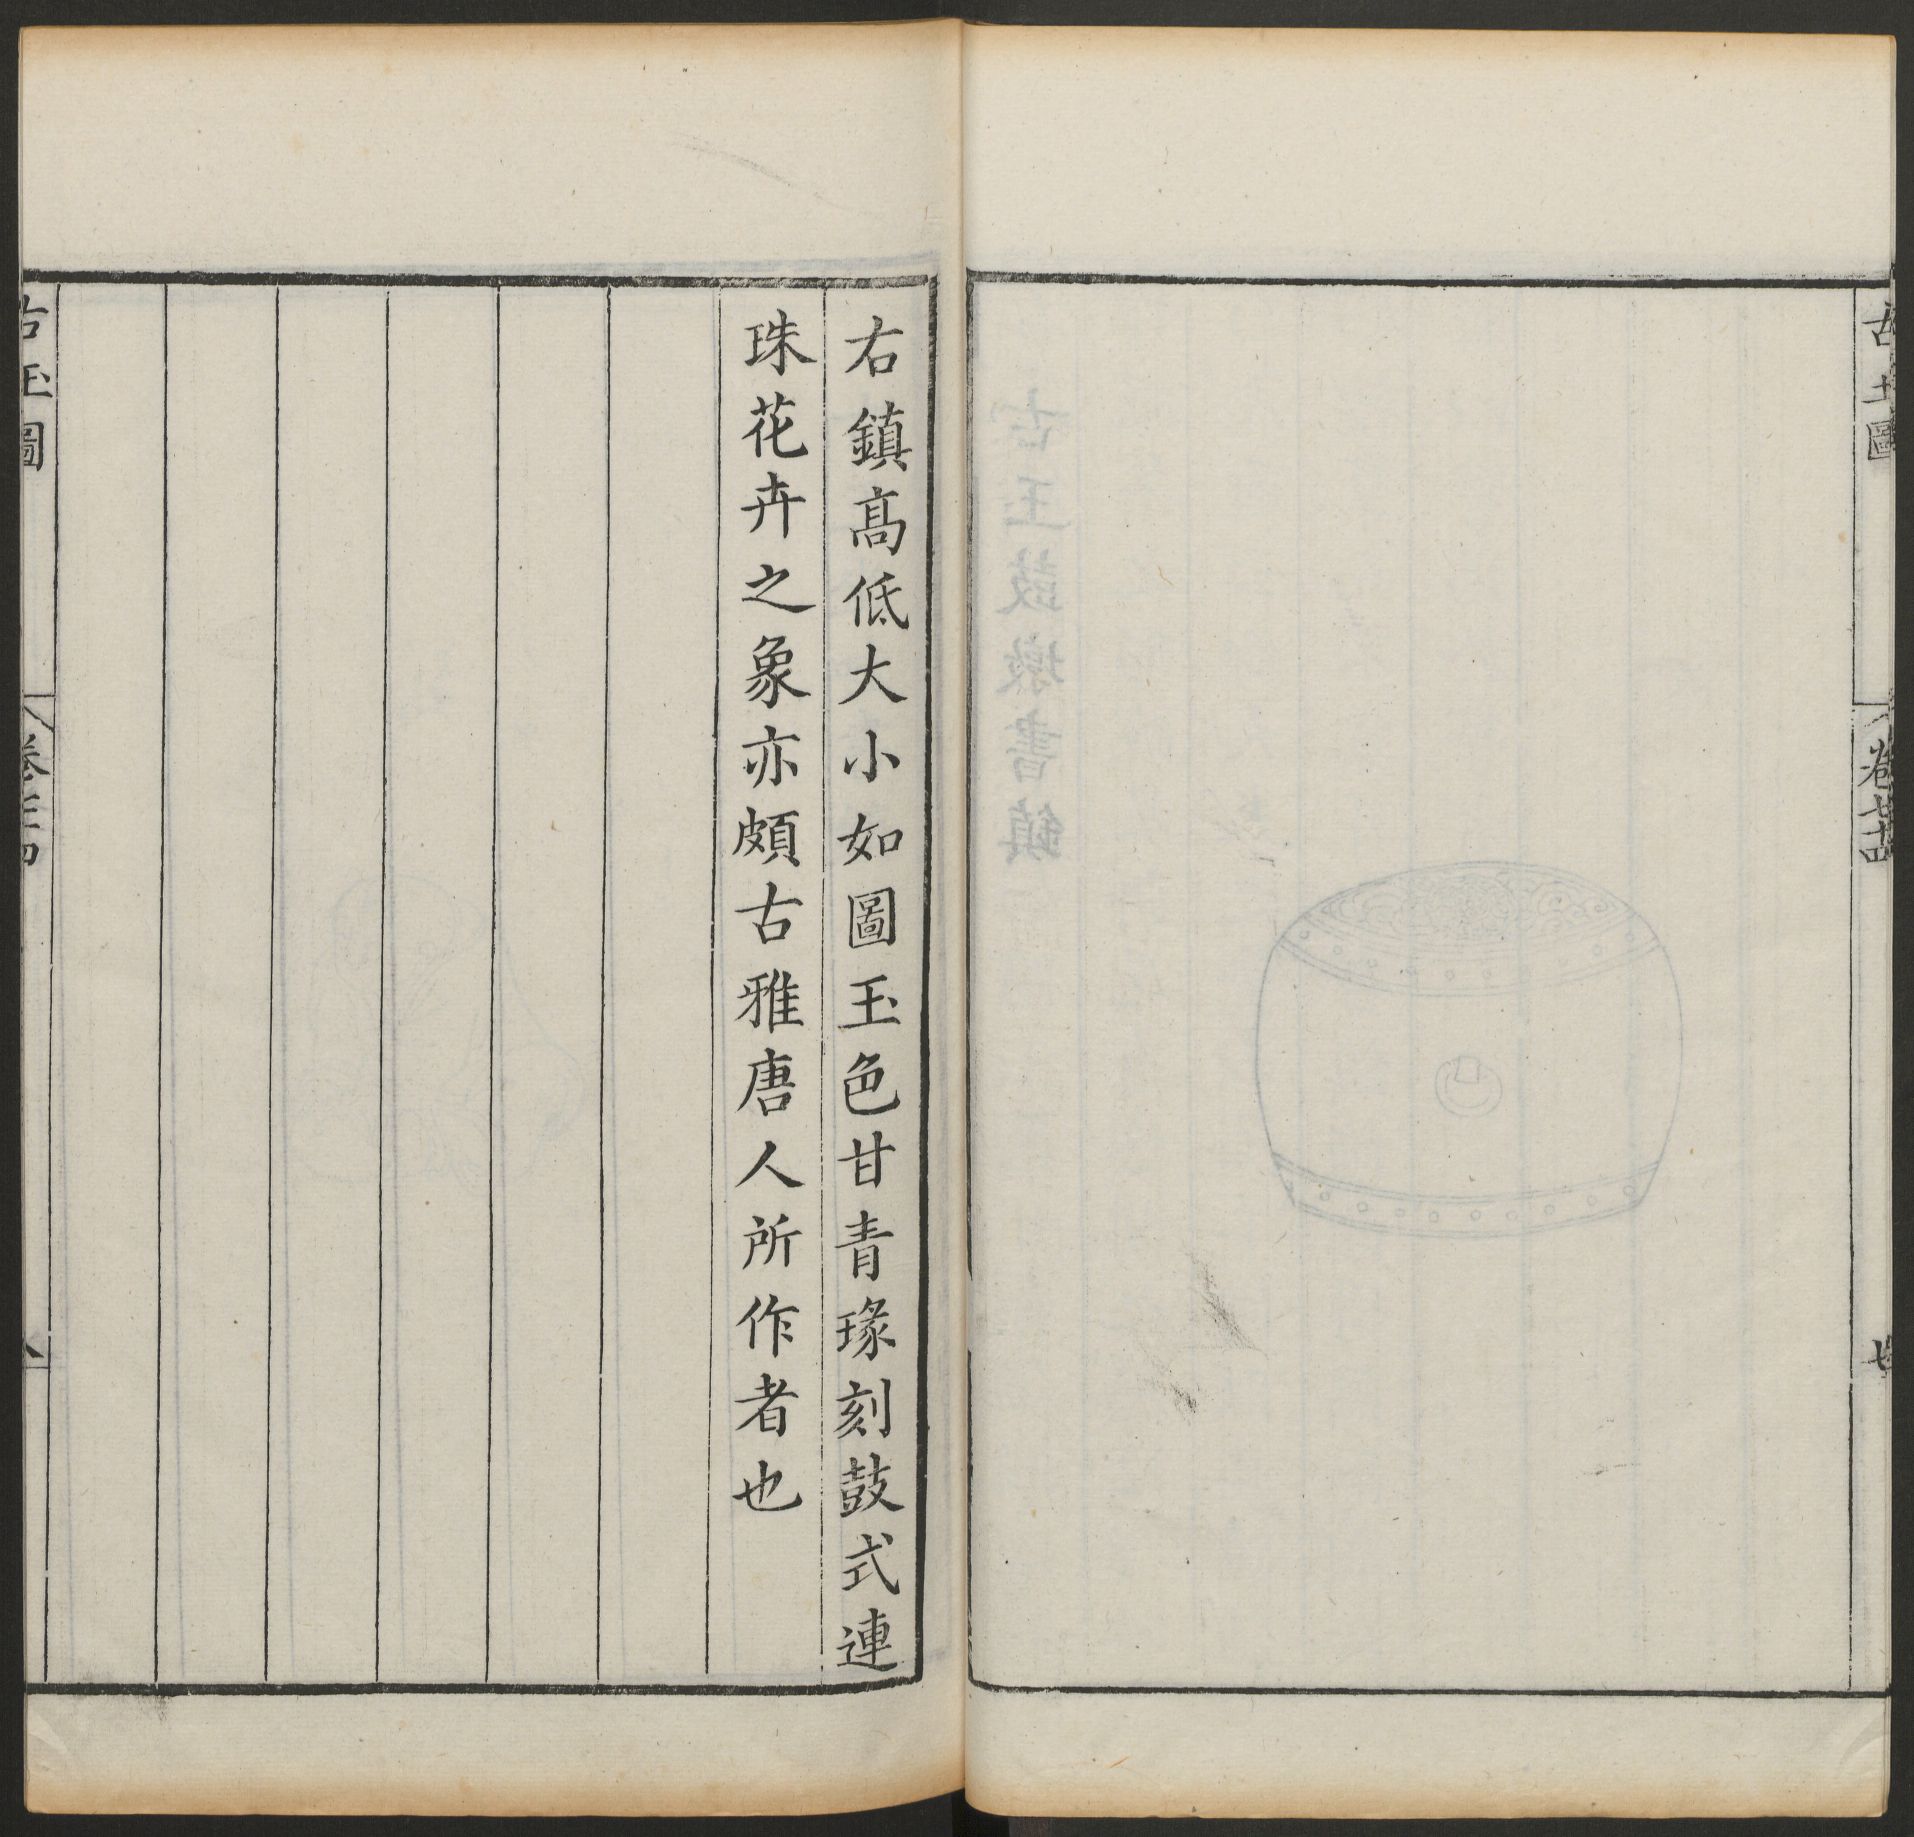 古玉圖
卷七十四
七
右鎮高低大小如圖玉色甘青瑑刻鼓式連
珠花卉之象亦頗古雅唐人所作者也
古玉圖
八